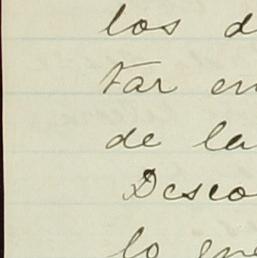 los d
tar en
de la
Deseo
lo que